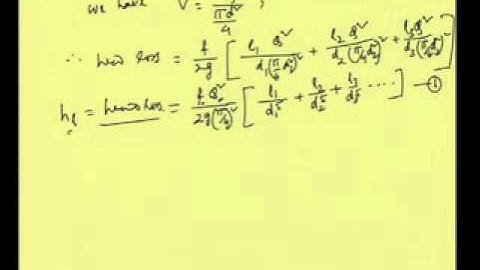 we have V = Q / (πd²/4) ,
∴ head loss = f/2g [ l₁ Q² / d₁(π/4 d₁²)² + l₂ Q² / d₂(π/4 d₂²)² + l₃ Q² / d₃(π/4 d₃²)² ]
h_f = head loss = f Q² / 2g(π/4)² [ l₁/d₁⁵ + l₂/d₂⁵ + l₃/d₃⁵ .... ] —①